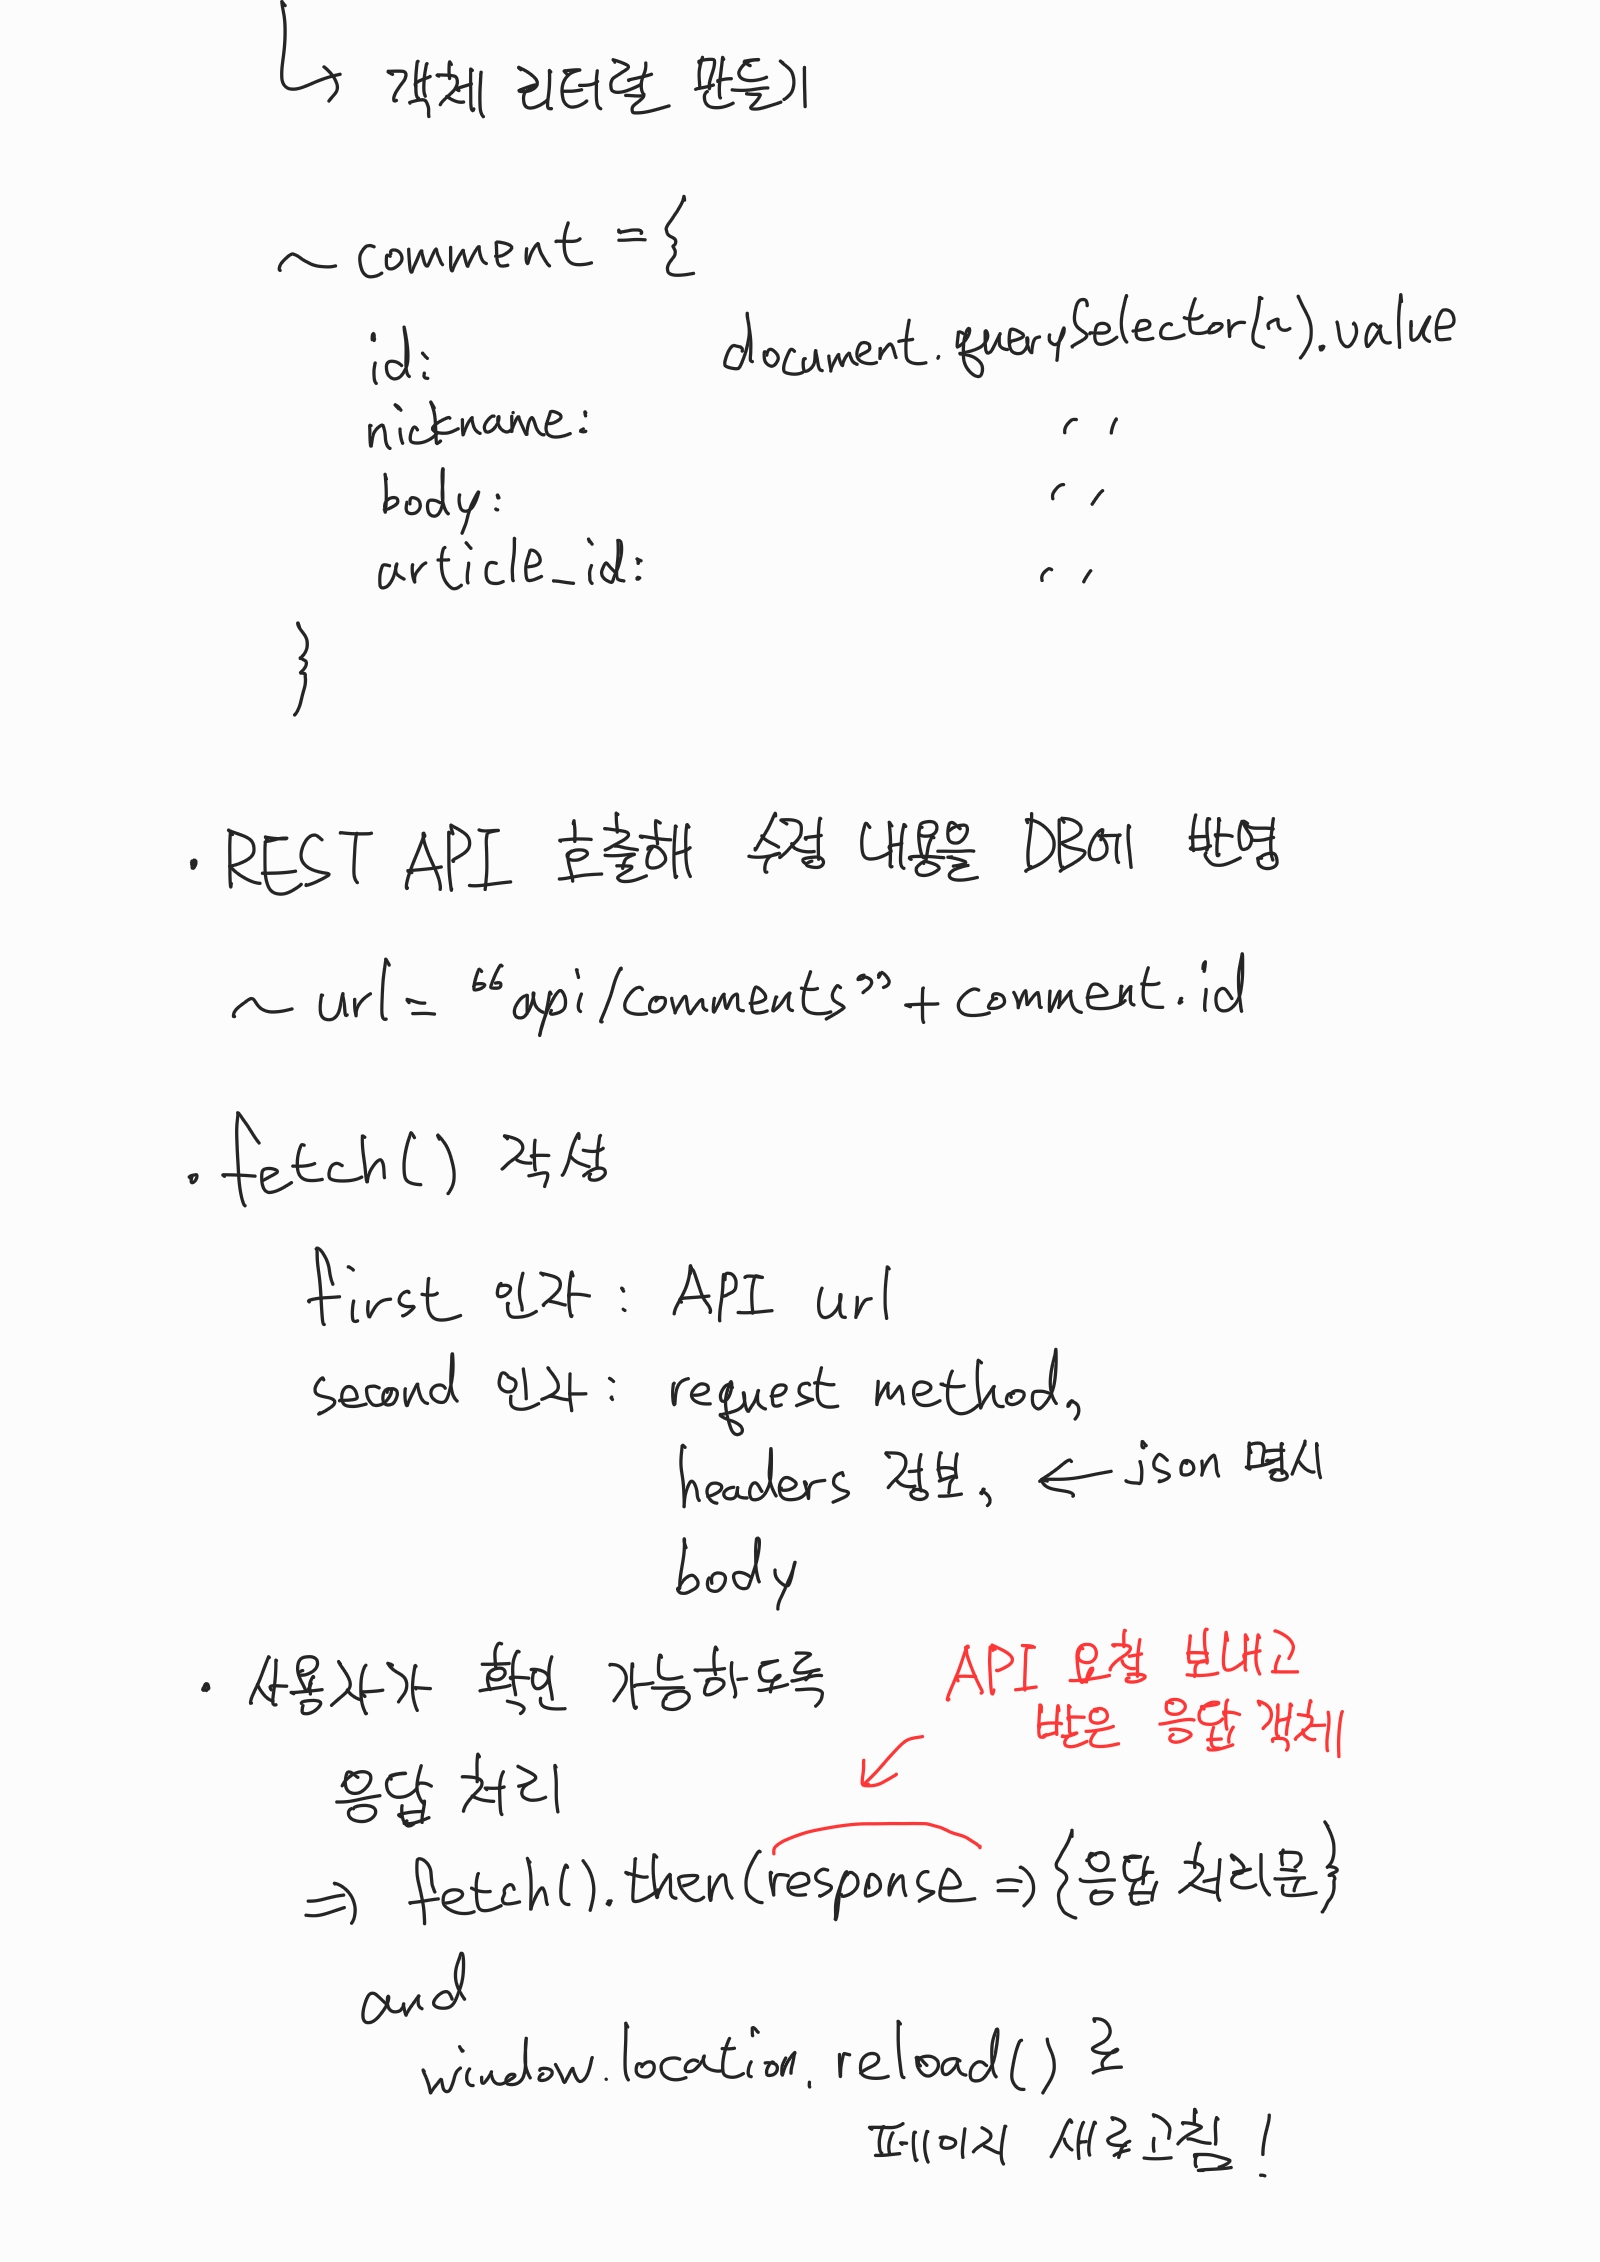 ↳ 객체 리터럴 만들기
~ comment = {
id: document.querySelector(~).value
nickname: 〃
body: 〃
article_id: 〃
}
· REST API 호출해 수정 내용을 DB에 반영
~ url = “api/comments” + comment.id
· fetch() 작성
first 인자 : API url
second 인자 : request method,
headers 정보, ← json 명시
body
· 사용자가 확인 가능하도록
응답 처리
API 요청 보내고
받은 응답 객체
⇒ fetch().then(response => {응답 처리문}
and
window.location.reload() 로
페이지 새로고침!